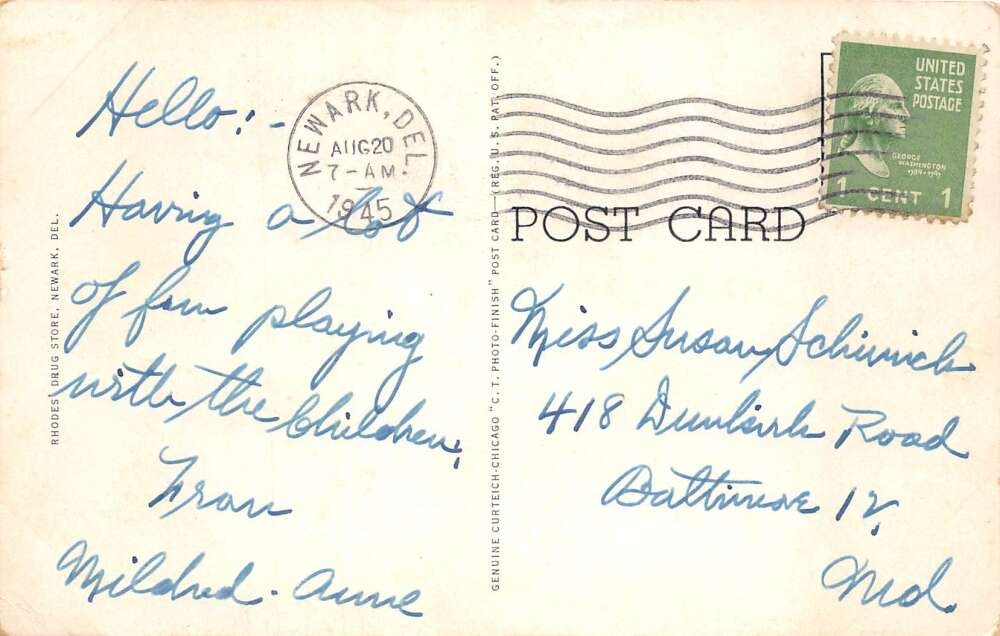 Hello:-
Having a lot
of fun playing
with the Children,
From
Mildred - Anne
RHODES DRUG STORE, NEWARK, DEL.
NEWARK, DEL.
AUG 20
7-AM
1945
GENUINE CURTEICH-CHICAGO "C. T. PHOTO-FINISH" POST CARD—(REG. U. S. PAT. OFF.)
UNITED
STATES
POSTAGE
GEORGE
WASHINGTON
1789-1797
1 CENT 1
POST CARD
Miss Susan
418 Dunkirk Road
Baltimore 12,
Md.